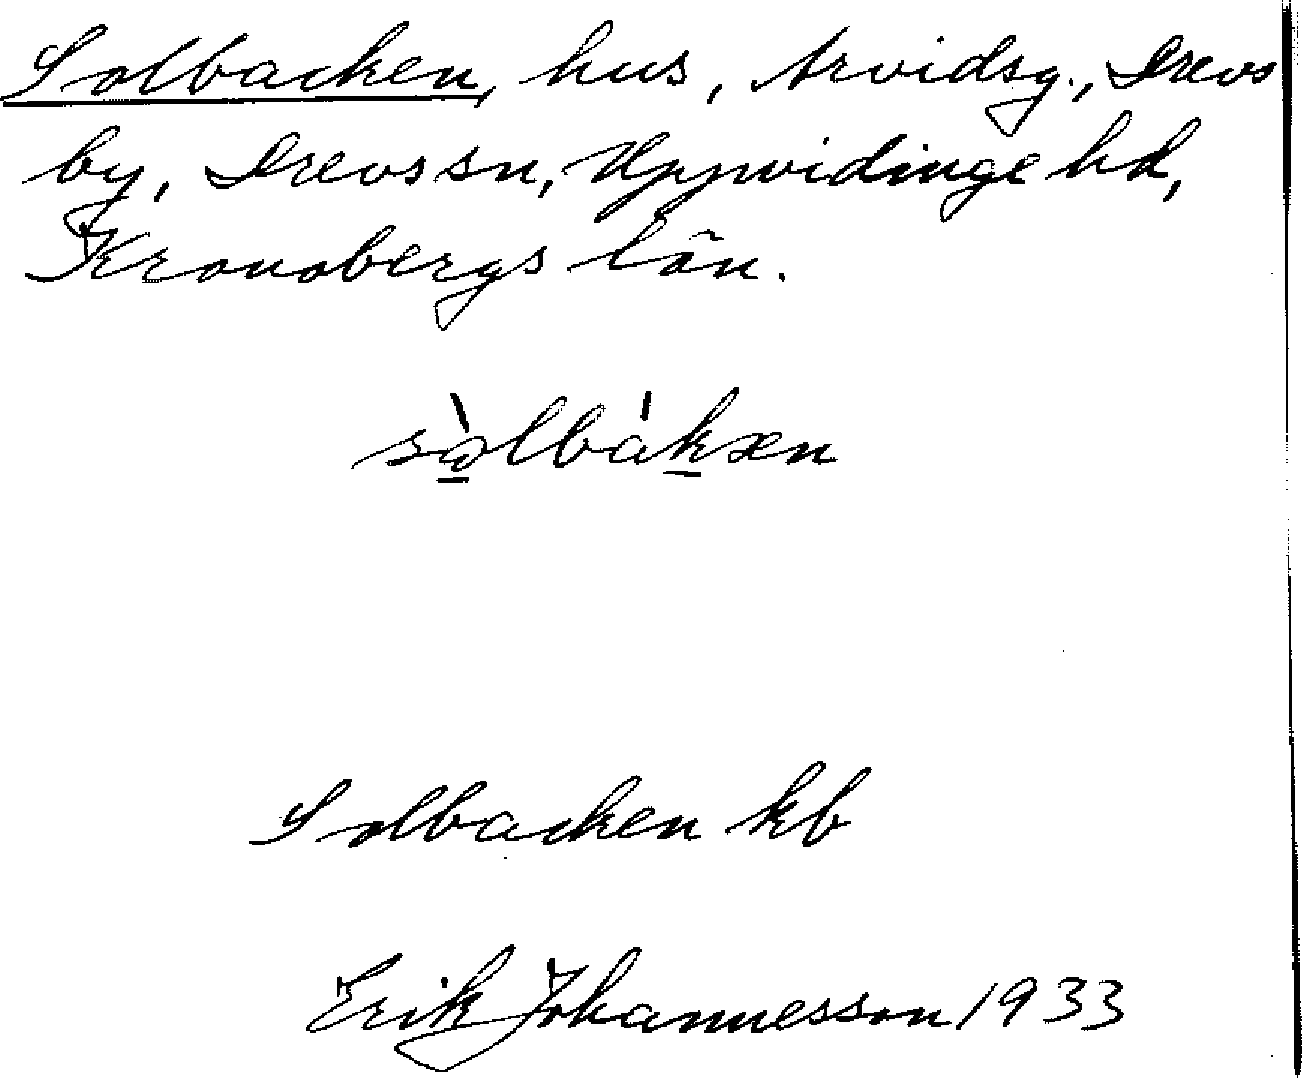 Solbacken, hus, Arvidsg., Drevs
by, Drevs sn, Uppvidinge hd,
Kronobergs län.
sòlbákən
Solbacken kb
Erik Johannesson 1933